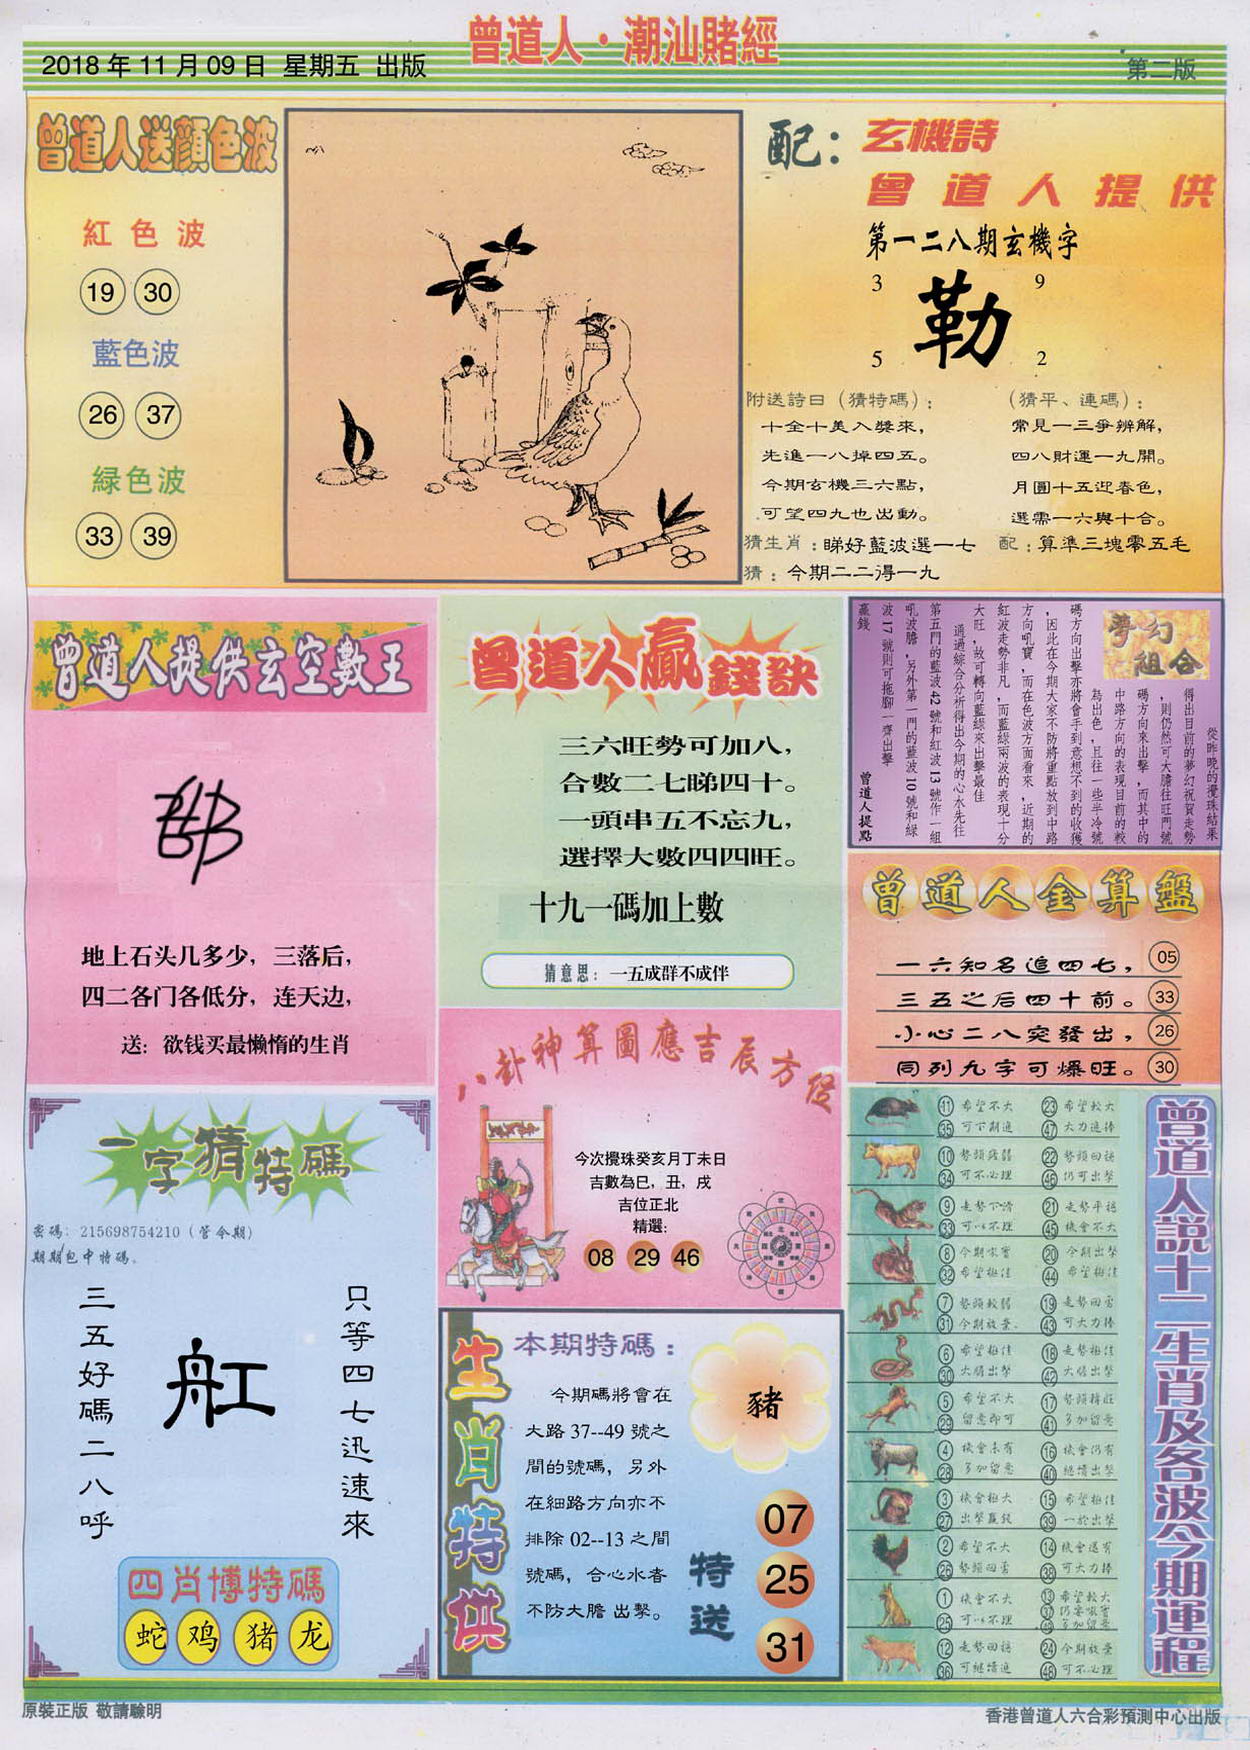 曾道人·潮汕賭經
2018年11月09日 星期五 出版
第二版
曾道人送顔色波
紅色波
19 30
藍色波
26 37
緑色波
33 39
配：玄機詩
曾道人提供
第一二八期玄機字
3 9
勒
5 2
附送詩曰（猜特碼）：
十全十美入獎來，
先進一八掉四五。
今期玄機三六點，
可望四九也出動。
（猜平、連碼）：
常見一三爭辨解，
四八財運一九開。
月圓十五迎春色，
選需一六與十合。
猜生肖：睇好藍波選一七
配：算準三塊零五毛
猜：今期二二得一九
曾道人提供玄空數王
地上石头几多少，三落后，
四二各门各低分，连天边，
送：欲钱买最懒惰的生肖
曾道人贏錢訣
三六旺勢可加八，
合數二七睇四十。
一頭串五不忘九，
選擇大數四四旺。
十九一碼加上數
猜意思：一五成群不成伴
夢幻組合
從昨晚的攪珠結果
得出目前的夢幻祝賀走勢
，則仍然可大膽往旺門號
碼方向來出擊，而其中的
中路方向的表現目前的較
為出色，且往一些半冷號
碼方向出擊亦將會手到意想不到的收獲
，因此在今期大家不防將重點放到中路
方向吼寶，而在色波方面看來，近期的
紅波走勢非凡，而藍綠兩波的表現十分
大旺，故可轉向藍綠來出擊最佳
通過綜合分析得出今期的心水先往
第五門的藍波42號和紅波13號作一組
吼波膽，另外第一門的藍波10號和綠
波17號則可拖腳一齊出擊
贏錢
曾道人提點
曾道人金算盤
一六知名追四七， 05
三五之后四十前。 33
小心二八突發出， 26
同列九字可爆旺。 30
八卦神算圖應吉辰方位
今次攪珠癸亥月丁未日
吉數為巳，丑，戌
吉位正北
精選：
08 29 46
一字猜特碼
密碼：215698754210（管令期）
期期包中特碼。
只等四七迅速來
舡
三五好碼二八呼
四肖博特碼
蛇 鸡 猪 龙
生肖特供
本期特碼：
今期碼將會在
大路37--49號之
間的號碼，另外
在細路方向亦不
排除02--13之間
號碼，合心水者
不防大膽出擊。
豬
特送
07
25
31
曾道人説十二生肖及各波今期運程
⑪希望不大 ㉓希望較大
㉟可下期進 ㊼大力進捧
⑩勢頭疲弱 ㉒勢頭回穩
㉞可不必理 ㊻仍可出擊
⑨走勢下滑 ㉑走勢平穩
㉝可以不理 ㊺機會不大
⑧今期吼寶 ⑳今期出擊
㉜希望極佳 ㊹希望極佳
⑦勢頭較弱 ⑲走勢回雲
㉛今期放棄 ㊸可大力捧
⑥希望極佳 ⑱走勢極佳
㉚大膽出擊 ㊷大膽出擊
⑤希望不大 ⑰勢頭轉旺
㉙留意即可 ㊶多加留意
④機會未有 ⑯機會仍有
㉘多加留意 ㊵繼續出擊
③機會極大 ⑮希望極佳
㉗出擊贏錢 ㊴一於出擊
②希望不大 ⑭機會還有
㉖勢頭回雲 ㊳可大力捧
①機會不大 ⑬希望較大
㉕可以不理 ㊲仍要吼寶
㊾多加留意
⑫走勢回穩 ㉔今期放棄
㊱可繼續進 ㊽可不必理
原裝正版 敬請驗明
香港曾道人六合彩預測中心出版